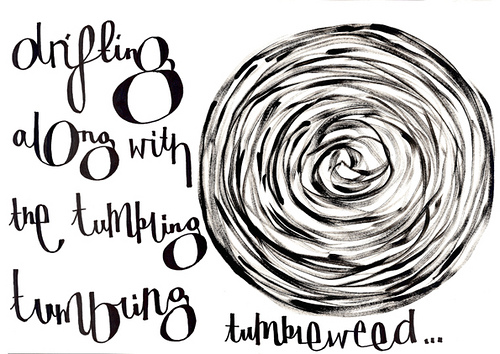 drifting
along with
the tumbling
tumbling
tumbleweed...